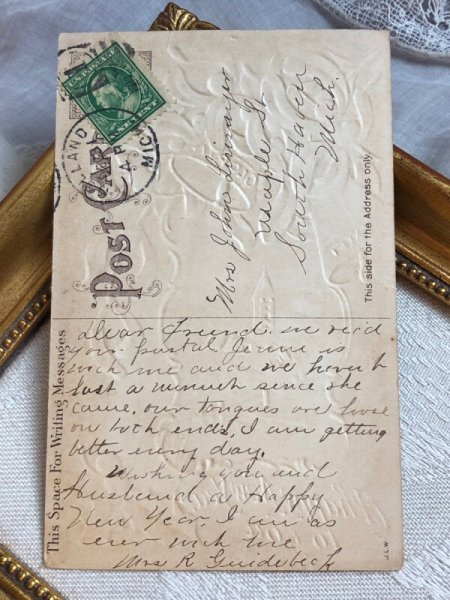 LAND
AP
MICH
POST CARD
This side for the Address only.
Mrs John
Maple St
South Haven
Mich.
This Space For Writing Messages
Dear Friend. we recd
your postal Jennie is
with me and we havent
lost a minuet since she
came. our tongues are loose
on both ends, I am getting
better every day.
Wishing you and
Husband a Happy
New Year, I am as
ever with love
Mrs R
J.L.W